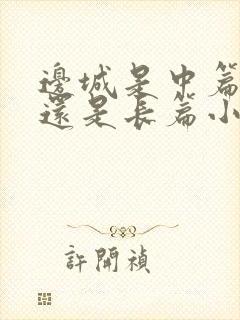 邊城是中篇
還是長篇小
許開禎